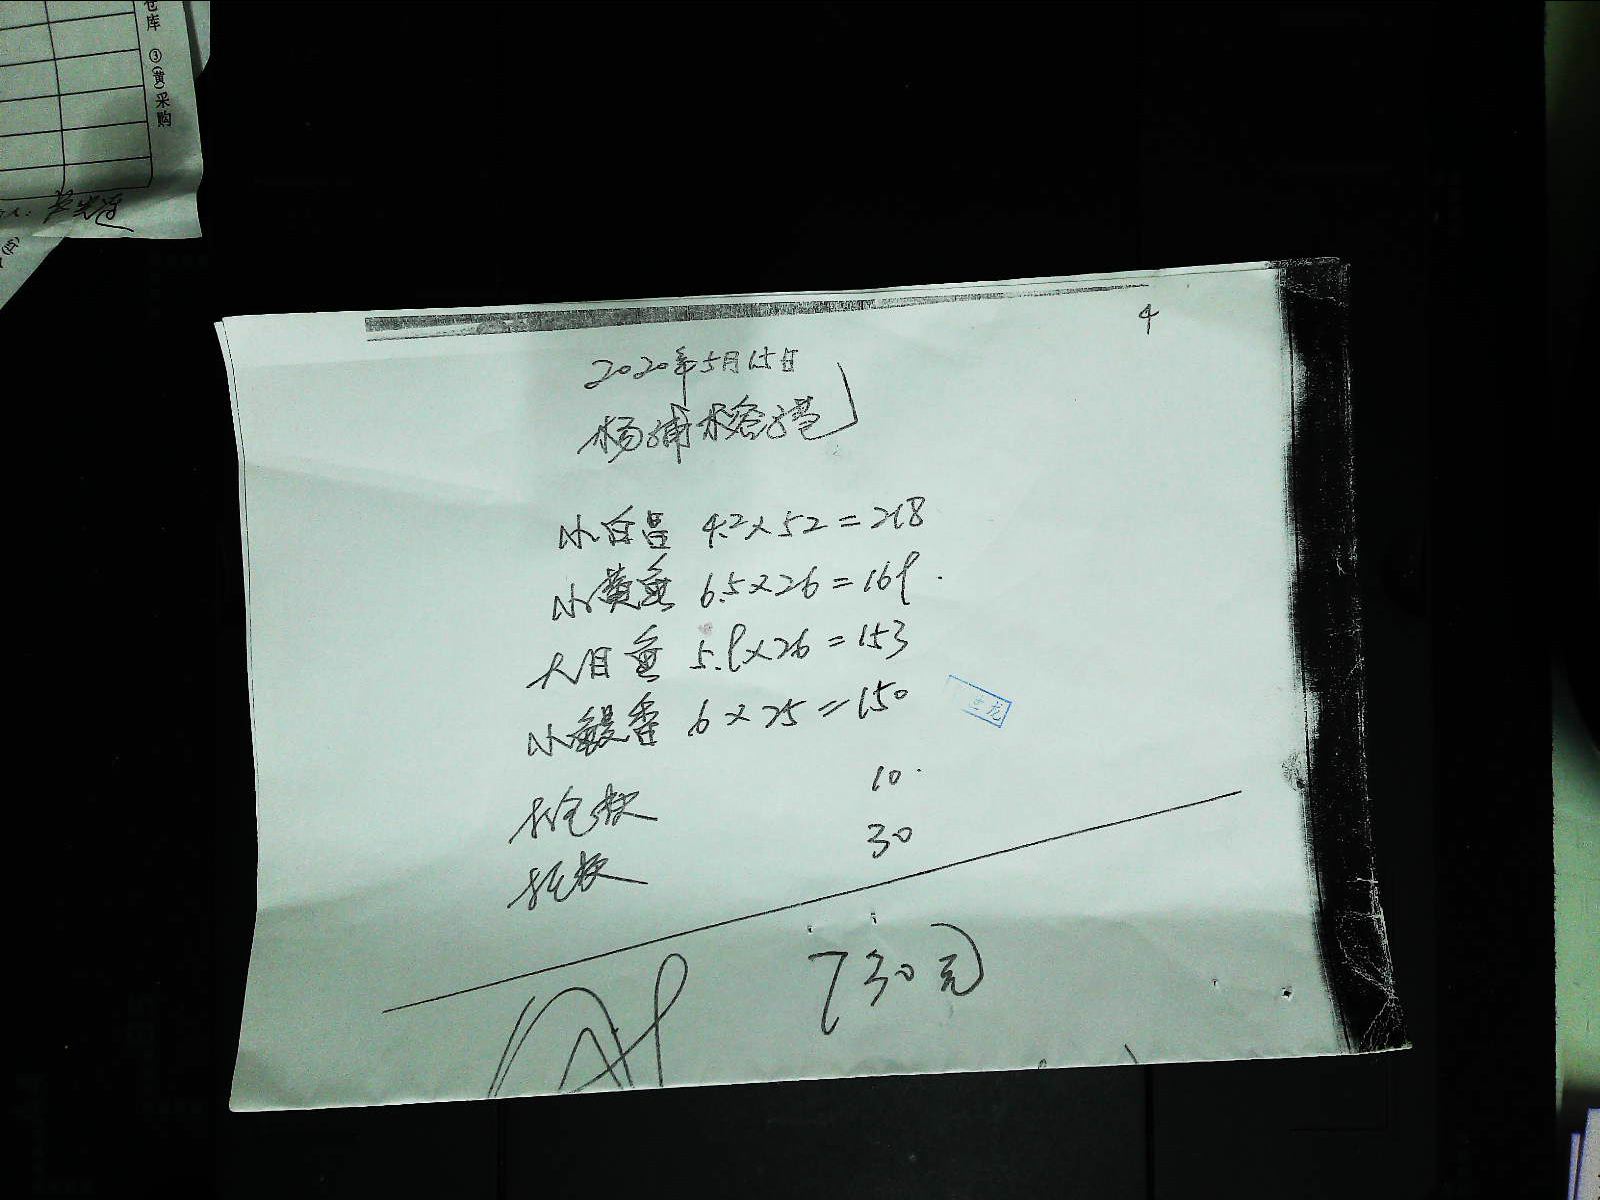 仓库 ③(黄)采购
4
2020年5月15日
杨浦榕港
小白昌 4.2×52=218
小黄鱼 6.5×26=169
大目鱼 5.9×26=153
小鳗番 6×25=150
10
30
730元